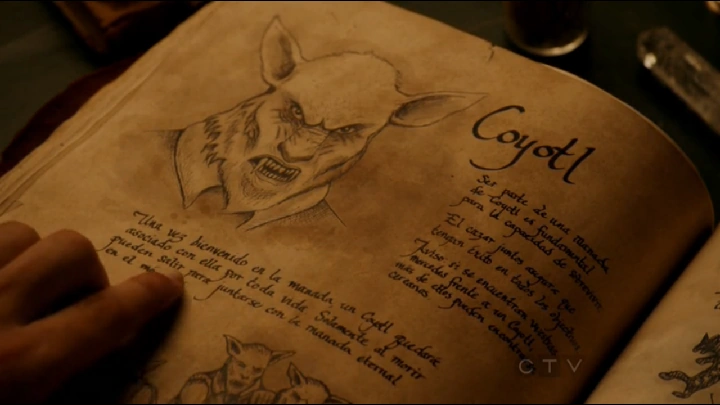 Coyotl
Ser parte de una manada
de Coyotl es fundamental
para la capacidad de sobrevivir
El cazar juntos augura que
tengan éxito en todas las
Aviso si se encuentran
frente a un Coyotl
más de ellos pueden
cercanos
Una vez bienvenido en la manada un Coyotl quedará
asociado con ella por toda vida Solamente al morir
pueden salir para juntarse con la manada eternal
en el
CTV